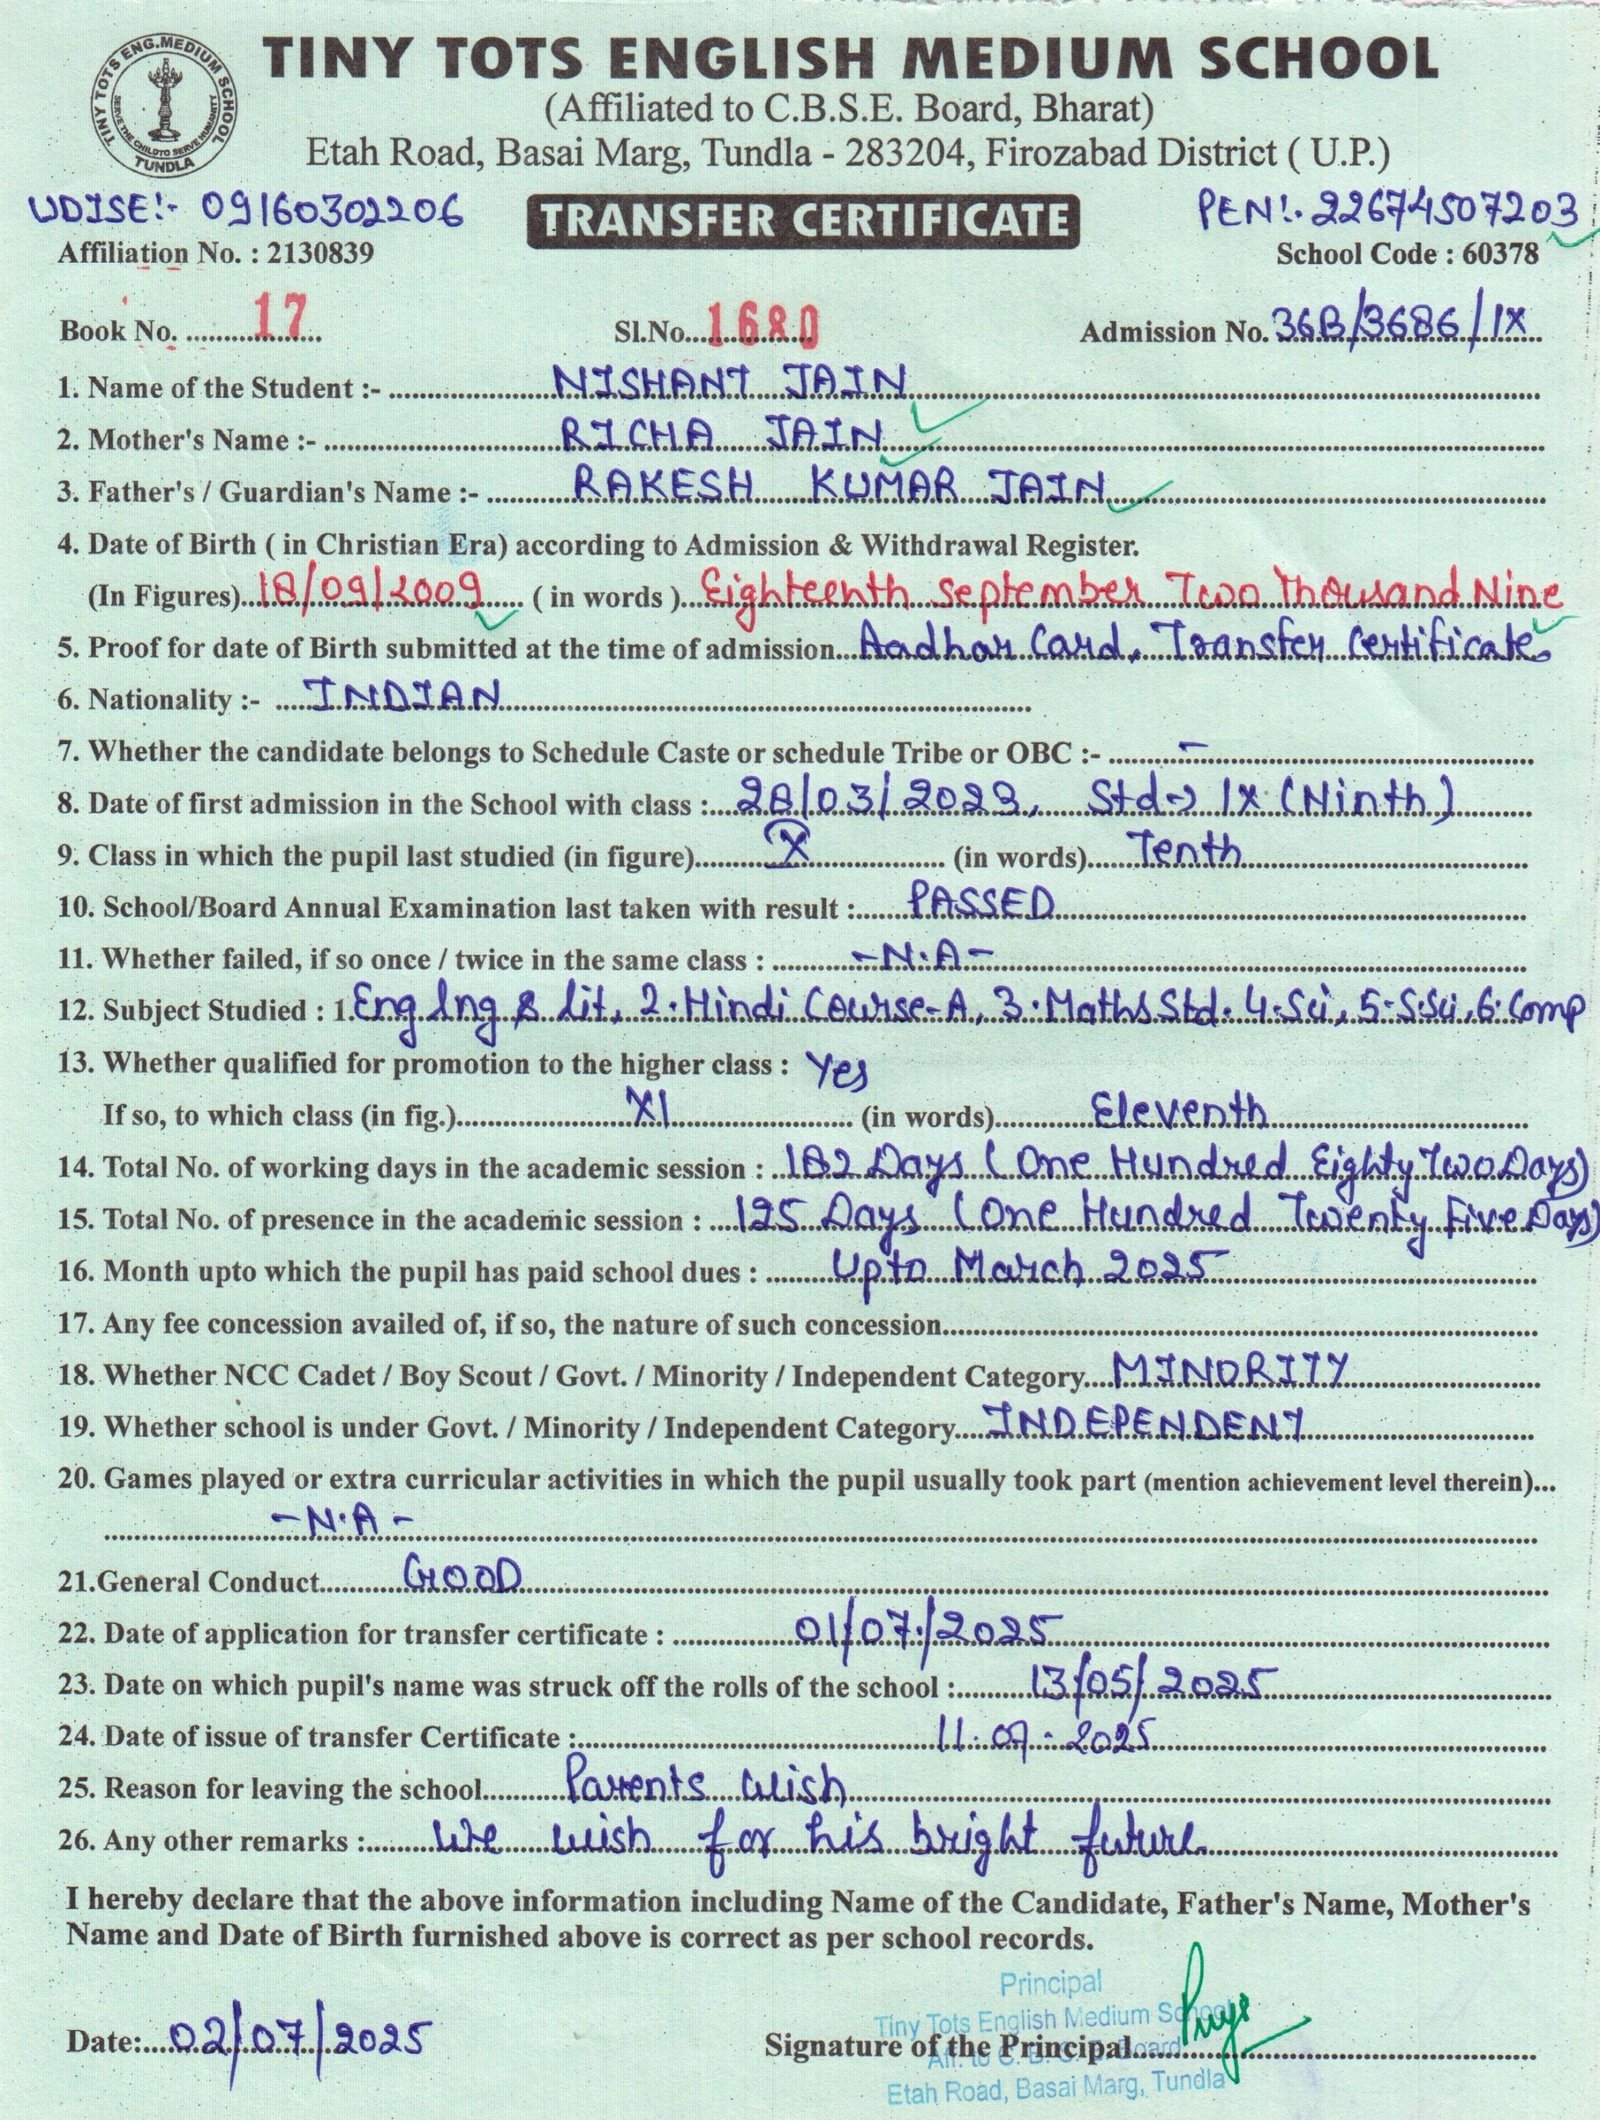 TINY TOTS ENG.MEDIUM SCHOOL
SERVE THE CHILD TO SERVE HUMANITY
TUNDLA
TINY TOTS ENGLISH MEDIUM SCHOOL
(Affiliated to C.B.S.E. Board, Bharat)
Etah Road, Basai Marg, Tundla - 283204, Firozabad District ( U.P.)
UDISE:- 09160302206 TRANSFER CERTIFICATE PEN:. 22674507203
Affiliation No. : 2130839 School Code : 60378
Book No. 17 Sl.No. 1680 Admission No. 36B/3686/IX
1. Name of the Student :- NISHANT JAIN
2. Mother's Name :- RICHA JAIN
3. Father's / Guardian's Name :- RAKESH KUMAR JAIN
4. Date of Birth ( in Christian Era) according to Admission & Withdrawal Register.
(In Figures) 18/09/2009 ( in words ) Eighteenth September Two Thousand Nine
5. Proof for date of Birth submitted at the time of admission Aadhar Card, Transfer Certificate
6. Nationality :- INDIAN
7. Whether the candidate belongs to Schedule Caste or schedule Tribe or OBC :- -
8. Date of first admission in the School with class : 28/03/2023, Std-> IX (Ninth)
9. Class in which the pupil last studied (in figure) X (in words) Tenth
10. School/Board Annual Examination last taken with result : PASSED
11. Whether failed, if so once / twice in the same class : -N.A-
12. Subject Studied : 1. Eng lng & lit, 2.Hindi Course-A, 3.Maths Std. 4.Sci, 5-S.Sci, 6.Comp
13. Whether qualified for promotion to the higher class : Yes
If so, to which class (in fig.) XI (in words) Eleventh
14. Total No. of working days in the academic session : 182 Days (One Hundred Eighty Two Days)
15. Total No. of presence in the academic session : 125 Days (One Hundred Twenty Five Days)
16. Month upto which the pupil has paid school dues : Upto March 2025
17. Any fee concession availed of, if so, the nature of such concession
18. Whether NCC Cadet / Boy Scout / Govt. / Minority / Independent Category MINORITY
19. Whether school is under Govt. / Minority / Independent Category INDEPENDENT
20. Games played or extra curricular activities in which the pupil usually took part (mention achievement level therein)...
-N.A-
21.General Conduct GOOD
22. Date of application for transfer certificate : 01/07/2025
23. Date on which pupil's name was struck off the rolls of the school : 13/05/2025
24. Date of issue of transfer Certificate : 11.07.2025
25. Reason for leaving the school Parents wish
26. Any other remarks : We wish for his bright future.
I hereby declare that the above information including Name of the Candidate, Father's Name, Mother's
Name and Date of Birth furnished above is correct as per school records.
Principal
Tiny Tots English Medium School
Date: 02/07/2025 Signature of the Principal
Aff. to C. B. S. E. Board
Etah Road, Basai Marg, Tundla